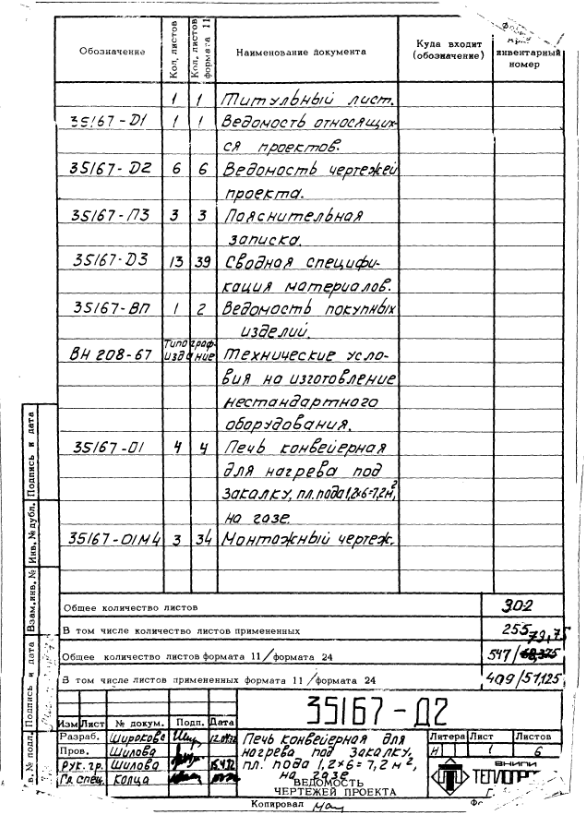 Обозначение Кол. листов Кол. листов формата 11 Наименование документа Куда входит (обозначение) инвентарный номер
1 1 Титульный лист.
35167-D1 1 1 Ведомость относящих-
ся проектов.
35167-D2 6 6 Ведомость чертежей
проекта.
35167-ПЗ 3 3 Пояснительная
записка.
35167-D3 13 39 Сводная специфи-
кация материалов.
35167-ВП 1 2 Ведомость покупных
изделий.
ВН 208-67 Типограф- издание Технические усло-
вия на изготовление
нестандартного
оборудования.
35167-01 4 4 Печь конвейерная
для нагрева под
закалку, пл. пода 1,2×6=7,2м²,
на газе.
35167-01М4 3 34 Монтажный чертеж.
Общее количество листов 302
В том числе количество листов примененных 255
79,75
Общее количество листов формата 11/формата 24 547/68,375
В том числе листов примененных формата 11/формата 24 409/51,125
Подпись и дата
Инв. № дубл.
Взам. инв. №
Подпись и дата
в. № подл.
35167-Д2
Изм Лист № докум. Подп. Дата
Разраб. Широкова
Пров. Шилова
Рук. гр. Шилова
Гл. спец. Колца
Печь конвейерная для
нагрева под закалку,
пл. пода 1,2×6=7,2м²,
на газе
ВЕДОМОСТЬ
ЧЕРТЕЖЕЙ ПРОЕКТА
Литера Лист Листов
И 1 6
ВНИПИ
ТЕПЛОПР
Копировал